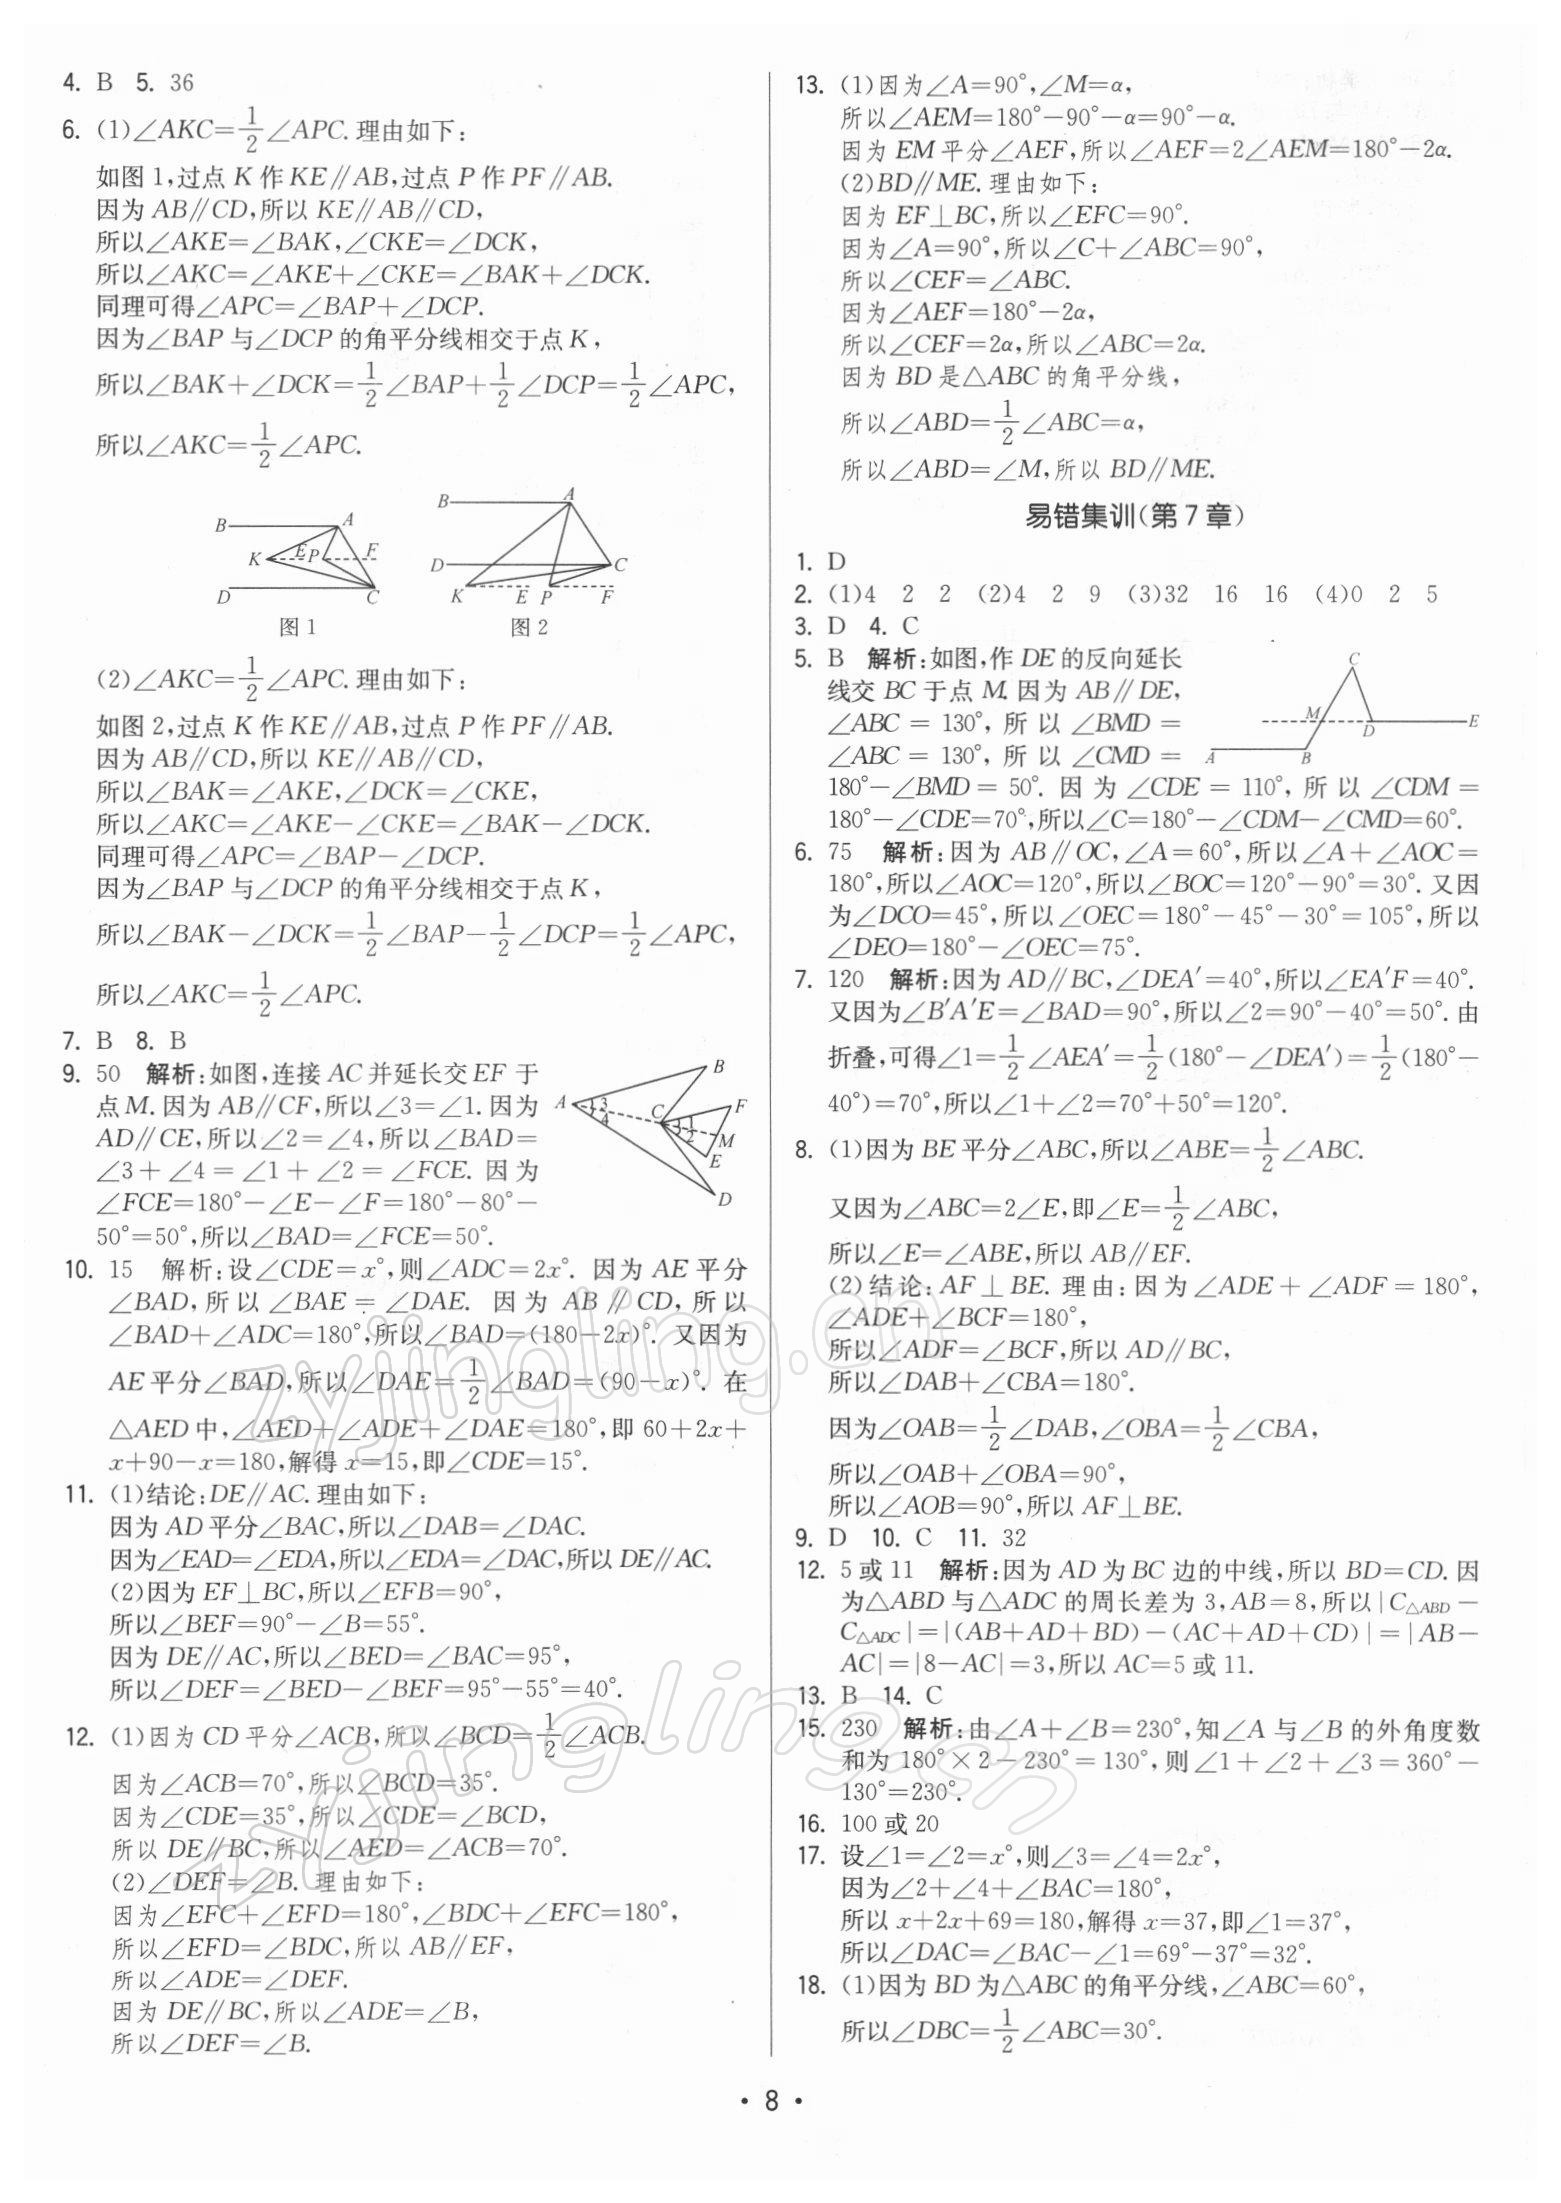 4. B 5. 36
6. (1)∠AKC=1/2∠APC.理由如下:
如图1,过点K作KE∥AB,过点P作PF∥AB.
因为AB∥CD,所以KE∥AB∥CD,
所以∠AKE=∠BAK,∠CKE=∠DCK,
所以∠AKC=∠AKE+∠CKE=∠BAK+∠DCK.
同理可得∠APC=∠BAP+∠DCP.
因为∠BAP与∠DCP的角平分线相交于点K,
所以∠BAK+∠DCK=1/2∠BAP+1/2∠DCP=1/2∠APC,
所以∠AKC=1/2∠APC.
B A K E P F D C
图1
B A D C K E P F
图2
(2)∠AKC=1/2∠APC.理由如下:
如图2,过点K作KE∥AB,过点P作PF∥AB.
因为AB∥CD,所以KE∥AB∥CD,
所以∠BAK=∠AKE,∠DCK=∠CKE,
所以∠AKC=∠AKE-∠CKE=∠BAK-∠DCK.
同理可得∠APC=∠BAP-∠DCP.
因为∠BAP与∠DCP的角平分线相交于点K,
所以∠BAK-∠DCK=1/2∠BAP-1/2∠DCP=1/2∠APC,
所以∠AKC=1/2∠APC.
7. B 8. B
9. 50 解析:如图,连接AC并延长交EF于
点M.因为AB∥CF,所以∠3=∠1.因为
AD∥CE,所以∠2=∠4,所以∠BAD=
∠3+∠4=∠1+∠2=∠FCE.因为
∠FCE=180°-∠E-∠F=180°-80°-
50°=50°,所以∠BAD=∠FCE=50°.
A 3 4 B C 1 2 F M E D
10. 15 解析:设∠CDE=x°,则∠ADC=2x°.因为AE平分
∠BAD,所以∠BAE=∠DAE.因为AB∥CD,所以
∠BAD+∠ADC=180°,所以∠BAD=(180-2x)°.又因为
AE平分∠BAD,所以∠DAE=1/2∠BAD=(90-x)°.在
△AED中,∠AED+∠ADE+∠DAE=180°,即60+2x+
x+90-x=180,解得x=15,即∠CDE=15°.
11. (1)结论:DE∥AC.理由如下:
因为AD平分∠BAC,所以∠DAB=∠DAC.
因为∠EAD=∠EDA,所以∠EDA=∠DAC,所以DE∥AC.
(2)因为EF⊥BC,所以∠EFB=90°,
所以∠BEF=90°-∠B=55°.
因为DE∥AC,所以∠BED=∠BAC=95°,
所以∠DEF=∠BED-∠BEF=95°-55°=40°.
12. (1)因为CD平分∠ACB,所以∠BCD=1/2∠ACB.
因为∠ACB=70°,所以∠BCD=35°.
因为∠CDE=35°,所以∠CDE=∠BCD,
所以DE∥BC,所以∠AED=∠ACB=70°.
(2)∠DEF=∠B.理由如下:
因为∠EFC+∠EFD=180°,∠BDC+∠EFC=180°,
所以∠EFD=∠BDC,所以AB∥EF,
所以∠ADE=∠DEF.
因为DE∥BC,所以∠ADE=∠B,
所以∠DEF=∠B.
13. (1)因为∠A=90°,∠M=α,
所以∠AEM=180°-90°-α=90°-α.
因为EM平分∠AEF,所以∠AEF=2∠AEM=180°-2α.
(2)BD∥ME.理由如下:
因为EF⊥BC,所以∠EFC=90°.
因为∠A=90°,所以∠C+∠ABC=90°,
所以∠CEF=∠ABC.
因为∠AEF=180°-2α,
所以∠CEF=2α,所以∠ABC=2α.
因为BD是△ABC的角平分线,
所以∠ABD=1/2∠ABC=α,
所以∠ABD=∠M,所以BD∥ME.
易错集训(第7章)
1. D
2. (1)4 2 2 (2)4 2 9 (3)32 16 16 (4)0 2 5
3. D 4. C
5. B 解析:如图,作DE的反向延长
线交BC于点M.因为AB∥DE,
∠ABC=130°,所以∠BMD=
∠ABC=130°,所以∠CMD=
180°-∠BMD=50°.因为∠CDE=110°,所以∠CDM=
180°-∠CDE=70°,所以∠C=180°-∠CDM-∠CMD=60°.
C M D E A B
6. 75 解析:因为AB∥OC,∠A=60°,所以∠A+∠AOC=
180°,所以∠AOC=120°,所以∠BOC=120°-90°=30°.又因
为∠DCO=45°,所以∠OEC=180°-45°-30°=105°,所以
∠DEO=180°-∠OEC=75°.
7. 120 解析:因为AD∥BC,∠DEA′=40°,所以∠EA′F=40°.
又因为∠B′A′E=∠BAD=90°,所以∠2=90°-40°=50°.由
折叠,可得∠1=1/2∠AEA′=1/2(180°-∠DEA′)=1/2(180°-
40°)=70°,所以∠1+∠2=70°+50°=120°.
8. (1)因为BE平分∠ABC,所以∠ABE=1/2∠ABC.
又因为∠ABC=2∠E,即∠E=1/2∠ABC,
所以∠E=∠ABE,所以AB∥EF.
(2)结论:AF⊥BE.理由:因为∠ADE+∠ADF=180°,
∠ADE+∠BCF=180°,
所以∠ADF=∠BCF,所以AD∥BC,
所以∠DAB+∠CBA=180°.
因为∠OAB=1/2∠DAB,∠OBA=1/2∠CBA,
所以∠OAB+∠OBA=90°,
所以∠AOB=90°,所以AF⊥BE.
9. D 10. C 11. 32
12. 5或11 解析:因为AD为BC边的中线,所以BD=CD.因
为△ABD与△ADC的周长差为3,AB=8,所以|C△ABD-
C△ADC|=|(AB+AD+BD)-(AC+AD+CD)|=|AB-
AC|=|8-AC|=3,所以AC=5或11.
13. B 14. C
15. 230 解析:由∠A+∠B=230°,知∠A与∠B的外角度数
和为180°×2-230°=130°,则∠1+∠2+∠3=360°-
130°=230°.
16. 100或20
17. 设∠1=∠2=x°,则∠3=∠4=2x°,
因为∠2+∠4+∠BAC=180°,
所以x+2x+69=180,解得x=37,即∠1=37°,
所以∠DAC=∠BAC-∠1=69°-37°=32°.
18. (1)因为BD为△ABC的角平分线,∠ABC=60°,
所以∠DBC=1/2∠ABC=30°.
zyjingling.cn
zyjingling.cn
• 8 •